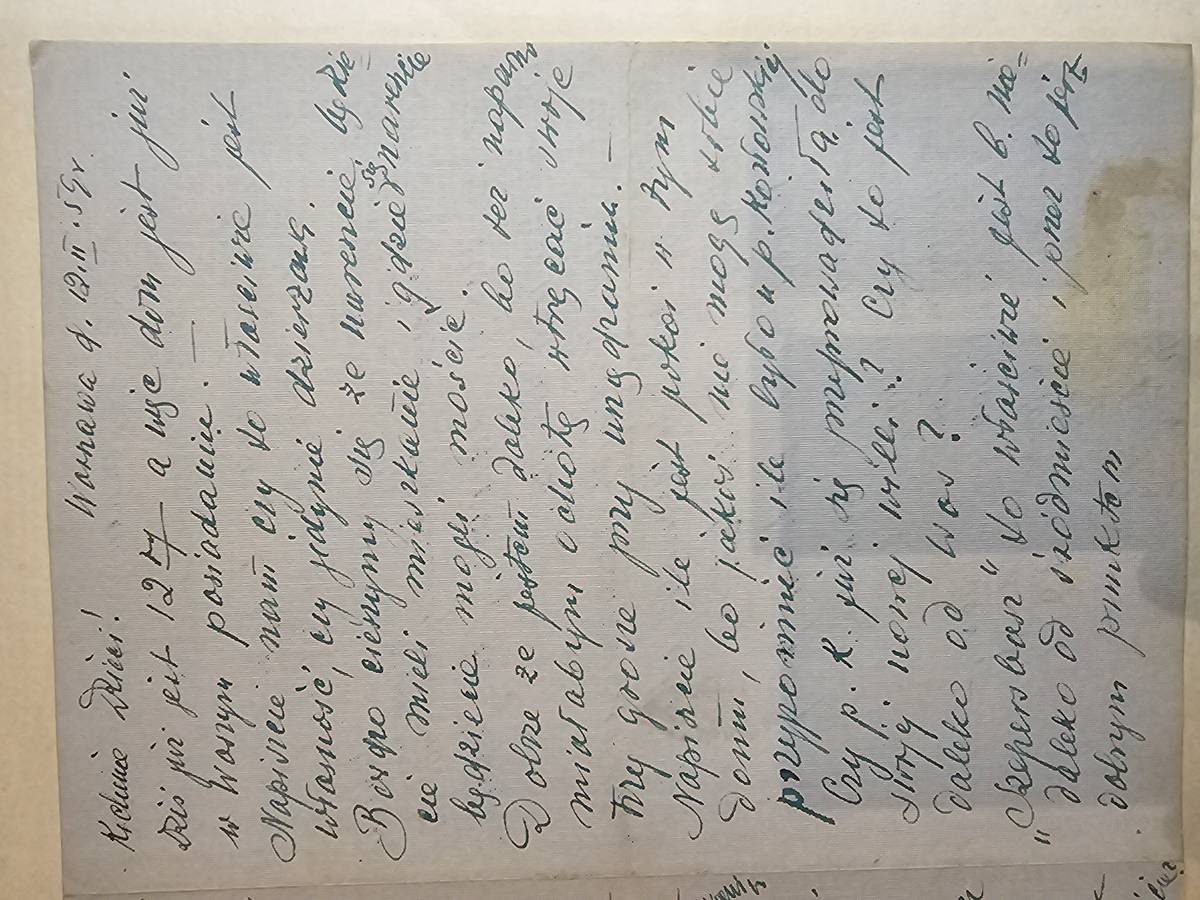 Kochane Dzieci! Warszawa d. 12.II.59r.
Dziś już jest 12 II a więc dom jest już
w Waszym posiadaniu. —
Napiszcie nam czy to właściwie jest
własność, czy jedynie dzierżawa.
Bardzo cieszymy się że nareszcie będzie=
cie mieli mieszkanie, gdzie się nareszcie
będziecie mogli mościć.
Dobrze że jestem daleko, bo też napewno
miałabym ochotę wtrącać swoje
trzy grosze przy urządzaniu. —
Napiszcie ile jest pokoi w tym
domu, bo jakoś nie mogę sobie
przypomnieć ile było u p. Kowalskiej
Czy p. K. już się przeprowadziła do
swojej nowej willi? Czy to jest
daleko od Was?
" " to właściwie jest b. nie=
daleko od śródmieścia, przez to jest
dobrym punktem